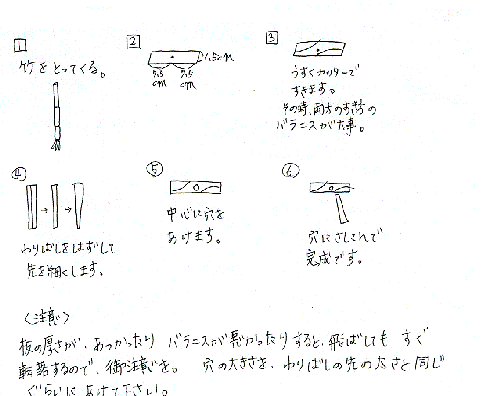 1
竹をとってくる。
2
1.5cm
7.5cm 7.5cm
3
うすくカッターで
すきます。
その時、両方の
バランスが大事。
4
わりばしをはずして
先を細くします。
5
中心に穴を
あけます。
6
穴にさしこんで
完成です。
〈注意〉
板の厚さが、あつかったり バランスが悪かったりすると、飛ばしても すぐ
転落するので、御注意を。 穴の大きさを、わりばしの先の太さと同じ
ぐらいにあけて下さい。